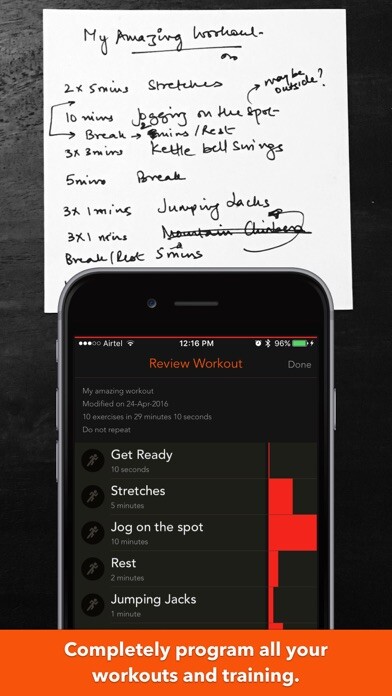 My Amazing Workout.
2 x 5 mins Stretches
maybe outside?
10 mins Jogging on the spot
Break → mins/Rest
3x 3 mins Kettle bell Swings
5 mins Break
3 x 1 mins Jumping Jacks
3 x 1 mins Mountain Climbers
Break/Rest 5 mins
Airtel 12:16 PM 96%
Review Workout Done
My amazing workout
Modified on 24-Apr-2016
10 exercises in 29 minutes 10 seconds
Do not repeat
Get Ready
10 seconds
Stretches
5 minutes
Jog on the spot
10 minutes
Rest
2 minutes
Jumping Jacks
1 minute
Completely program all your
workouts and training.